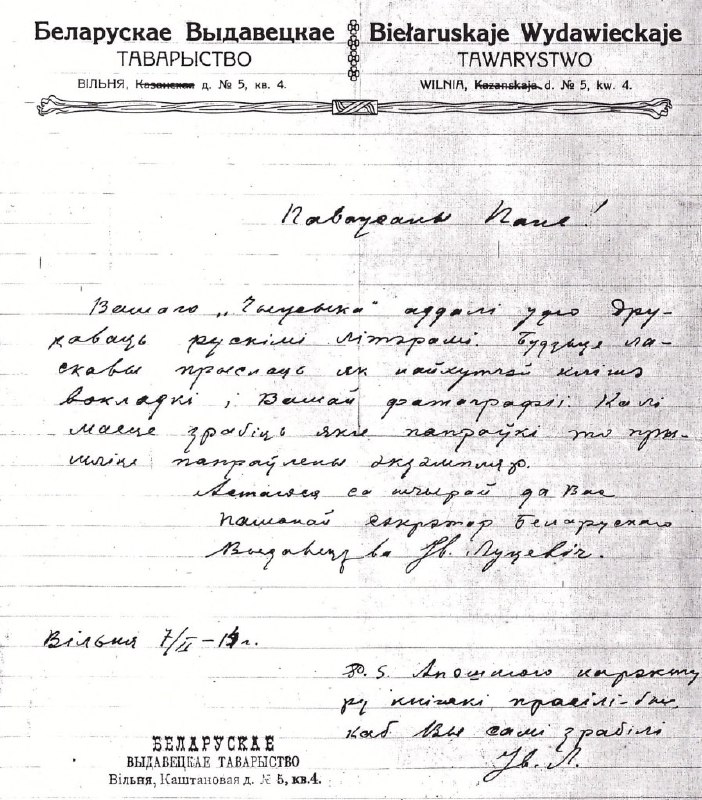 Беларускае Выдавецкае
ТАВАРЫСТВО
ВІЛЬНЯ, Казанская д. № 5, кв. 4.
Biełaruskaje Wydawieckaje
TAWARYSTWO
WILNIA, Kazanskaja d. № 5, kw. 4.
Паважаны Пане!
Вашаго „ аддалі ўдго дру-
каваць рускімі літэрамі. Будзьце ла-
скавы прыслаць як найхутчэй клішэ
вокладкі і Вашай фотографіі. Калі
маеце зрабіць якіе папраўкі то пры-
шліце папраўлены экзэмпляр.
Астаюся са шчырай да Вас
пашанай сэкрэтар Беларускаго
Выдавецтва Ів. Луцевіч.
Вільня 7/II – 14 г.
P. S. Апошняго карэкту
ру кніжкі прасілі-бы,
каб Вы самі зрабілі
Ів. Л.
БЕЛАРУСКАЕ
ВЫДАВЕЦКАЕ ТАВАРЫСТВО
Вільня, Каштановая д. № 5, кв. 4.